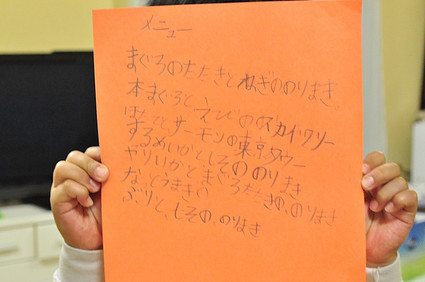 メニュー
まぐろのたたきとねぎののりまき。
本まぐろとえびのスカイツリー
ほたてとサーモンの東京タワー
するめいかとしそののりまき
やりいかとまぐろたたきの、のりまき
なっとうまきい
ぶりと、しその、のりまき